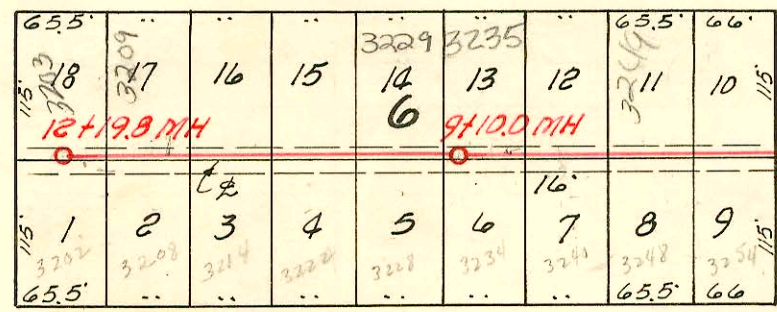 65.5' .. .. 65.5' 66'
3203 3209 3229 3235 3249
115' 18 17 16 15 14 13 12 11 10 115'
6
12+19.8 MH 9+10.0 MH
℄ 16'
115' 1 2 3 4 5 6 7 8 9 115'
3202 3208 3214 3222 3228 3234 3240 3248 3254
65.5' .. .. .. .. 65.5' 66